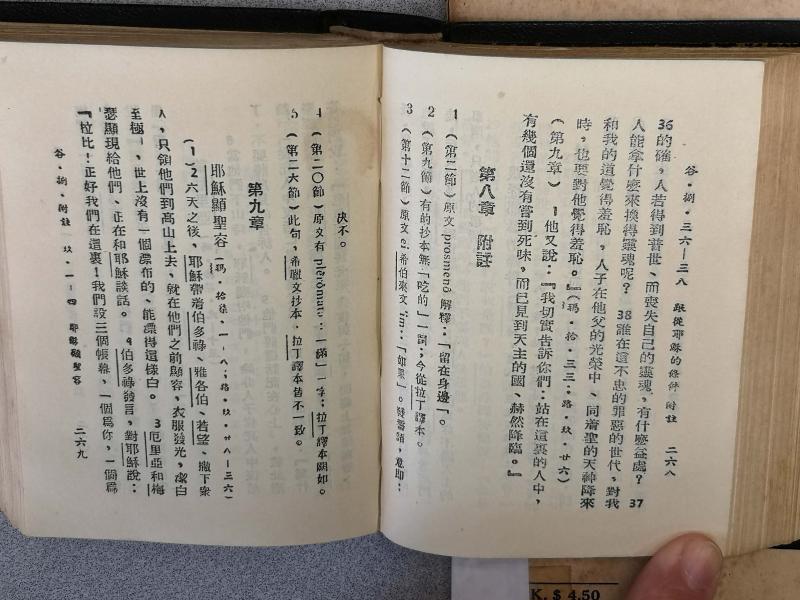 谷・捌・三六—三八　跟從耶穌的條件・附註　二六八
36的確，人若得到普世、而喪失自己的靈魂，有什麼益處？ 37
人能拿什麼來換得靈魂呢？ 38誰在這不忠的罪惡的世代，對我
和我的道覺得羞恥，人子在他父的光榮中、同着聖的天神降來
時，也要對他覺得羞恥。』（瑪・拾・三三；路・玖・廿六）
（第九章） 1他又說：『我切實告訴你們：站在這裏的人中，
有幾個還沒有嘗到死味，而已見到天主的國、赫然降臨。』
第八章　附註
1 （第二節）原文 prosmenô 解釋：「留在身邊」。
2 （第九節）有的抄本無「吃的」一詞；今從拉丁譯本。
3 （第十二節）原文 ei 希伯來文 'im：「如果」。發誓語，意即：
決不。
4 （第二〇節）原文有 plêrômata：一「滿」字；拉丁譯本闕如。
5 （第二六節）此句，希臘文抄本，拉丁譯本皆不一致。
第九章
耶穌顯聖容（瑪・拾柒・一—八；路・玖・廿八—三六）
（1）2六天之後，耶穌帶着伯多祿、雅各伯、若望、撇下眾
人，只領他們到高山上去，就在他們之前顯容，衣服發光，潔白
至極，世上沒有一個漂布的、能漂得這樣白。 3厄里亞和梅
瑟顯現給他們、正在和耶穌談話。 4伯多祿發言，對耶穌說：
『拉比！正好我們在這裏！我們設三個帳棚，一個爲你，一個爲
谷・捌・附註　玖・一—四　耶穌顯聖容　二六九
K. $ 4.50